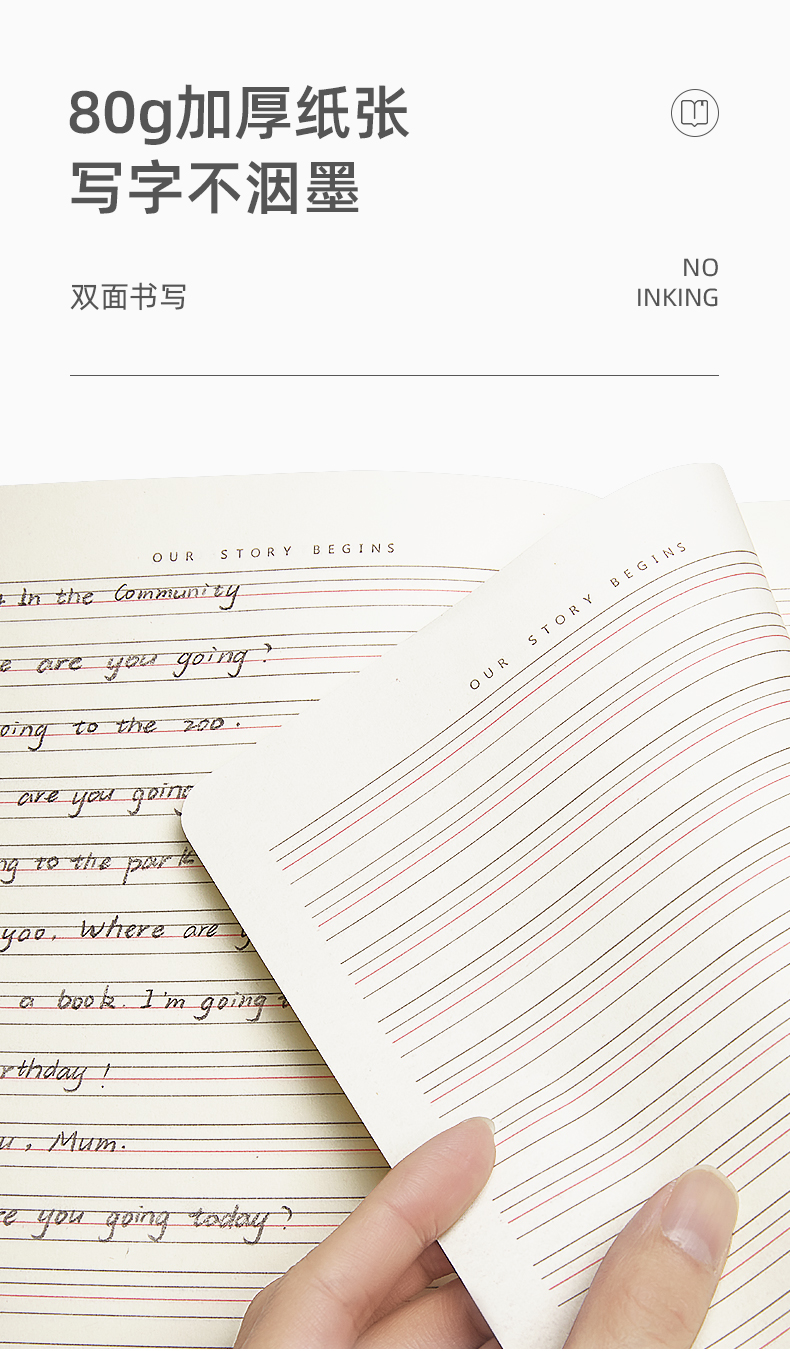 80g加厚纸张
写字不洇墨
双面书写
NO
INKING
OUR STORY BEGINS
OUR STORY BEGINS
In the Community
e are you going?
oing to the zoo.
are you going
ng to the park
yoo. Where are y
a book. I'm going t
rthday!
u, Mum.
re you going today?